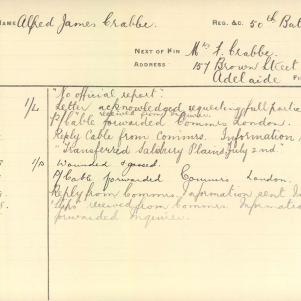 NAME Alfred James Crabbe. REG. &C. 50th Bat
NEXT OF KIN Mrs F. Crabbe.
ADDRESS 157 Brown Street
Adelaide
"No official report".
1/L Letter acknowledged requesting full partic
received from Inquirer
P/Cable forwarded Commrs London.
Reply Cable from Commrs. Information
"Transferred Salisbury Plains July 2nd."
1/P Wounded & gassed.
P/Cable forwarded Commrs London.
Reply from Commrs. Information sent
received from Commrs. Informatio
forwarded Inquirer.